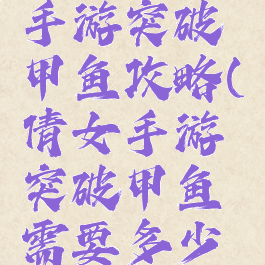 手游突破
甲鱼攻略(
倩女手游
突破甲鱼
需要多少